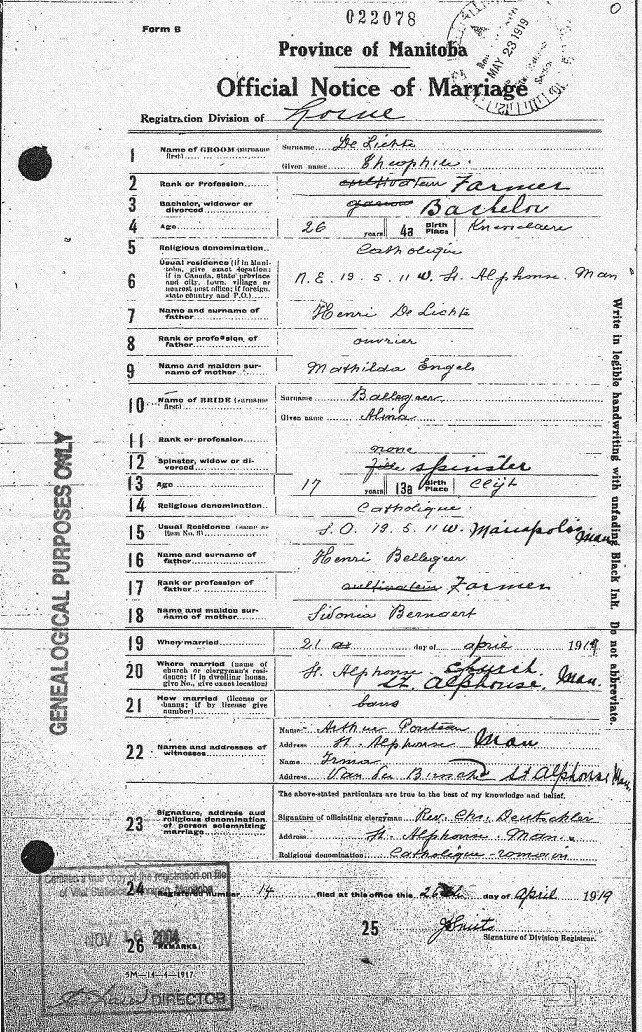 Form B
022078
MAY 23 1919
Province of Manitoba
Official Notice of Marriage
Registration Division of Lorne
1 Name of GROOM (surname first) Surname De Lichte
Given name Theophile
2 Rank or Profession cultivateur Farmer
3 Bachelor, widower or divorced garcon Bachelor
4 Age 26 years 4a Birth Place
5 Religious denomination Catholique
6 Usual residence (if in Manitoba, give exact location; if in Canada, state province and city, town, village or nearest post office; if foreign, state country and P.O.) N.E. 19. 5. 11 W. St. Alphonse. Man
7 Name and surname of father Henri De Lichte
8 Rank or profession of father ouvrier
9 Name and maiden surname of mother Mathilda Engels
10 Name of BRIDE (surname first) Surname Bellegeer
Given name Alina
11 Rank or profession none
12 Spinster, widow or divorced fille spinster
13 Age 17 years 13a Birth Place
14 Religious denomination Catholique
15 Usual Residence (same as Item No. 6) S.O. 19. 5. 11 W. Mariapolis Man.
16 Name and surname of father Henri Bellegeer
17 Rank or profession of father cultivateur Farmer
18 Name and maiden surname of mother Sidonia Bernaert
19 When married 21 day of april 1919
20 Where married (name of church or clergyman's residence; if in dwelling house, give No., give exact location) St. Alphonse Church. St. Alphonse, Man.
21 How married (license or banns; if by license give number) bans
22 Names and addresses of witnesses Name Arthur
Address St. Alphonse Man
Name Irma
Address Van den St Alphonse Man.
The above-stated particulars are true to the best of my knowledge and belief.
23 Signature, address and religious denomination of person solemnizing marriage Signature of officiating clergyman Rev. Chr. Deutschler
Address St. Alphonse Man.
Religious denomination Catholique romain
24 Registered number 14 filed at this office this day of April 1919
25
Signature of Division Registrar.
26 REMARKS:
5M—14-4-1917.
Certified a true copy of the registration on file
of Vital Statistics, Manitoba
NOV 2004
DIRECTOR
GENEALOGICAL PURPOSES ONLY
Write in legible handwriting with unfading Black Ink. Do not abbreviate.